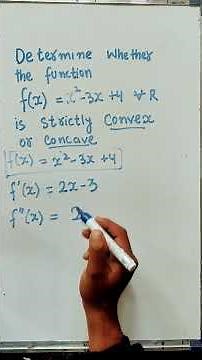 Determine Whether
the function
f(x) = x²-3x+4 ∀ R
is strictly Convex
or Concave
f(x) = x²-3x+4
f'(x) = 2x-3
f''(x) = 2